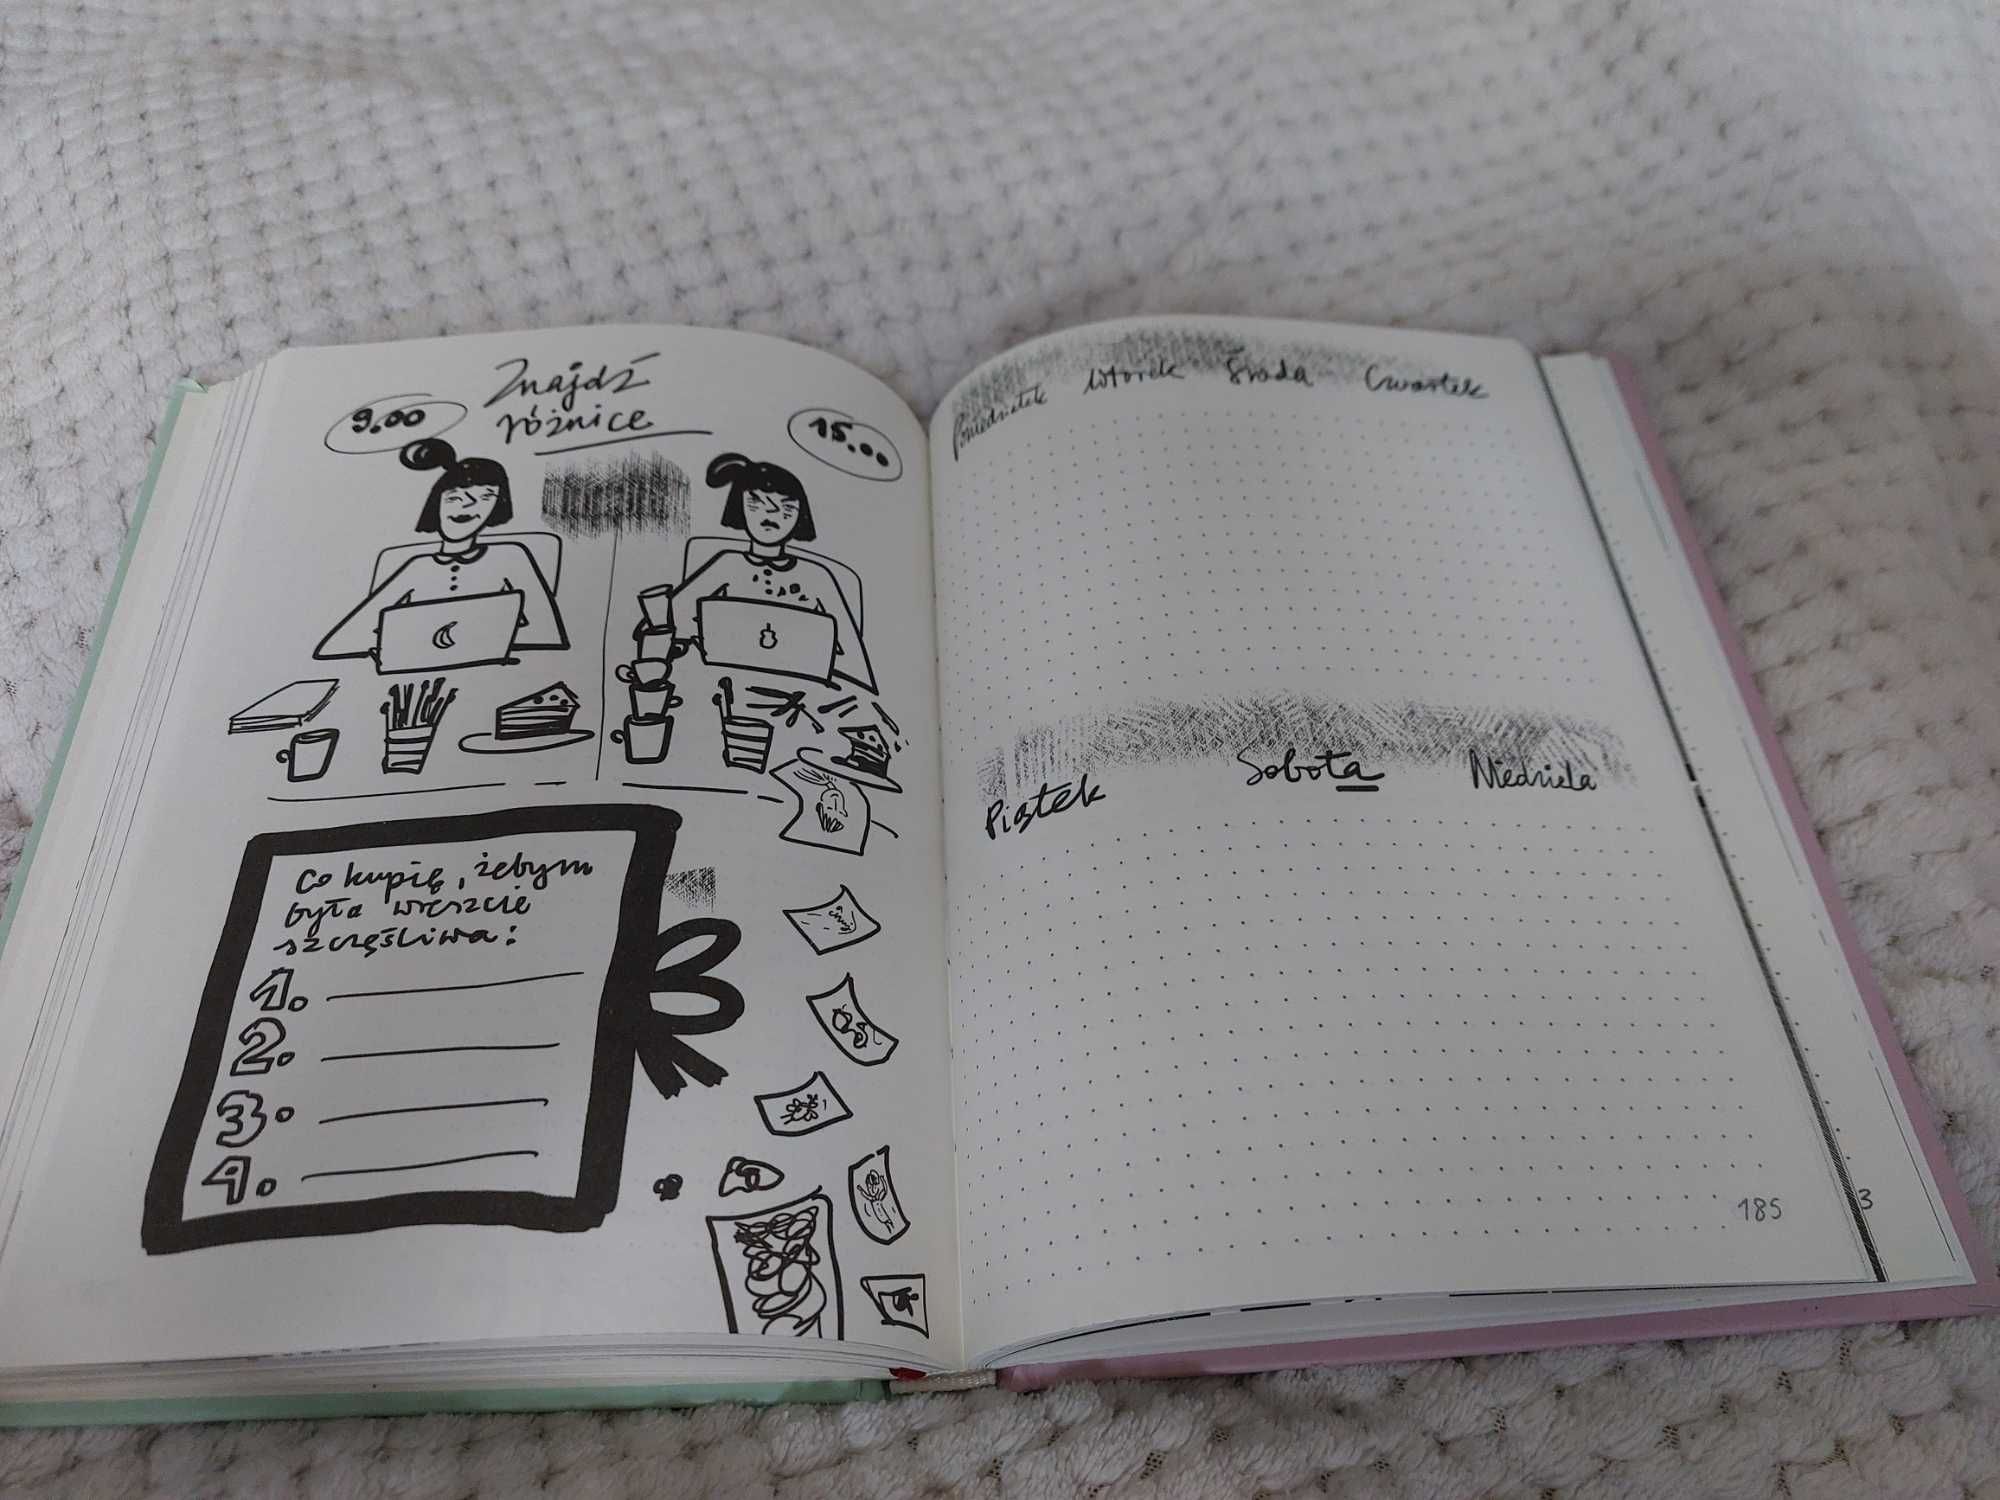 Znajdź
różnice
9.00
15.00
co kupię, żebym
była wreszcie
szczęśliwa:
1.
2.
3.
4.
Poniedziałek Wtorek Środa Czwartek
Piątek Sobota Niedziela
185
3